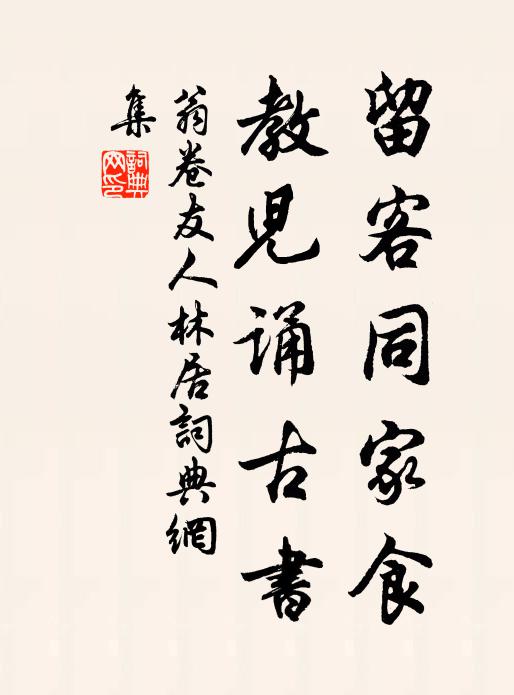 留客同家食
教児誦古書
翁卷友人林居詞典網
集
詞典網印